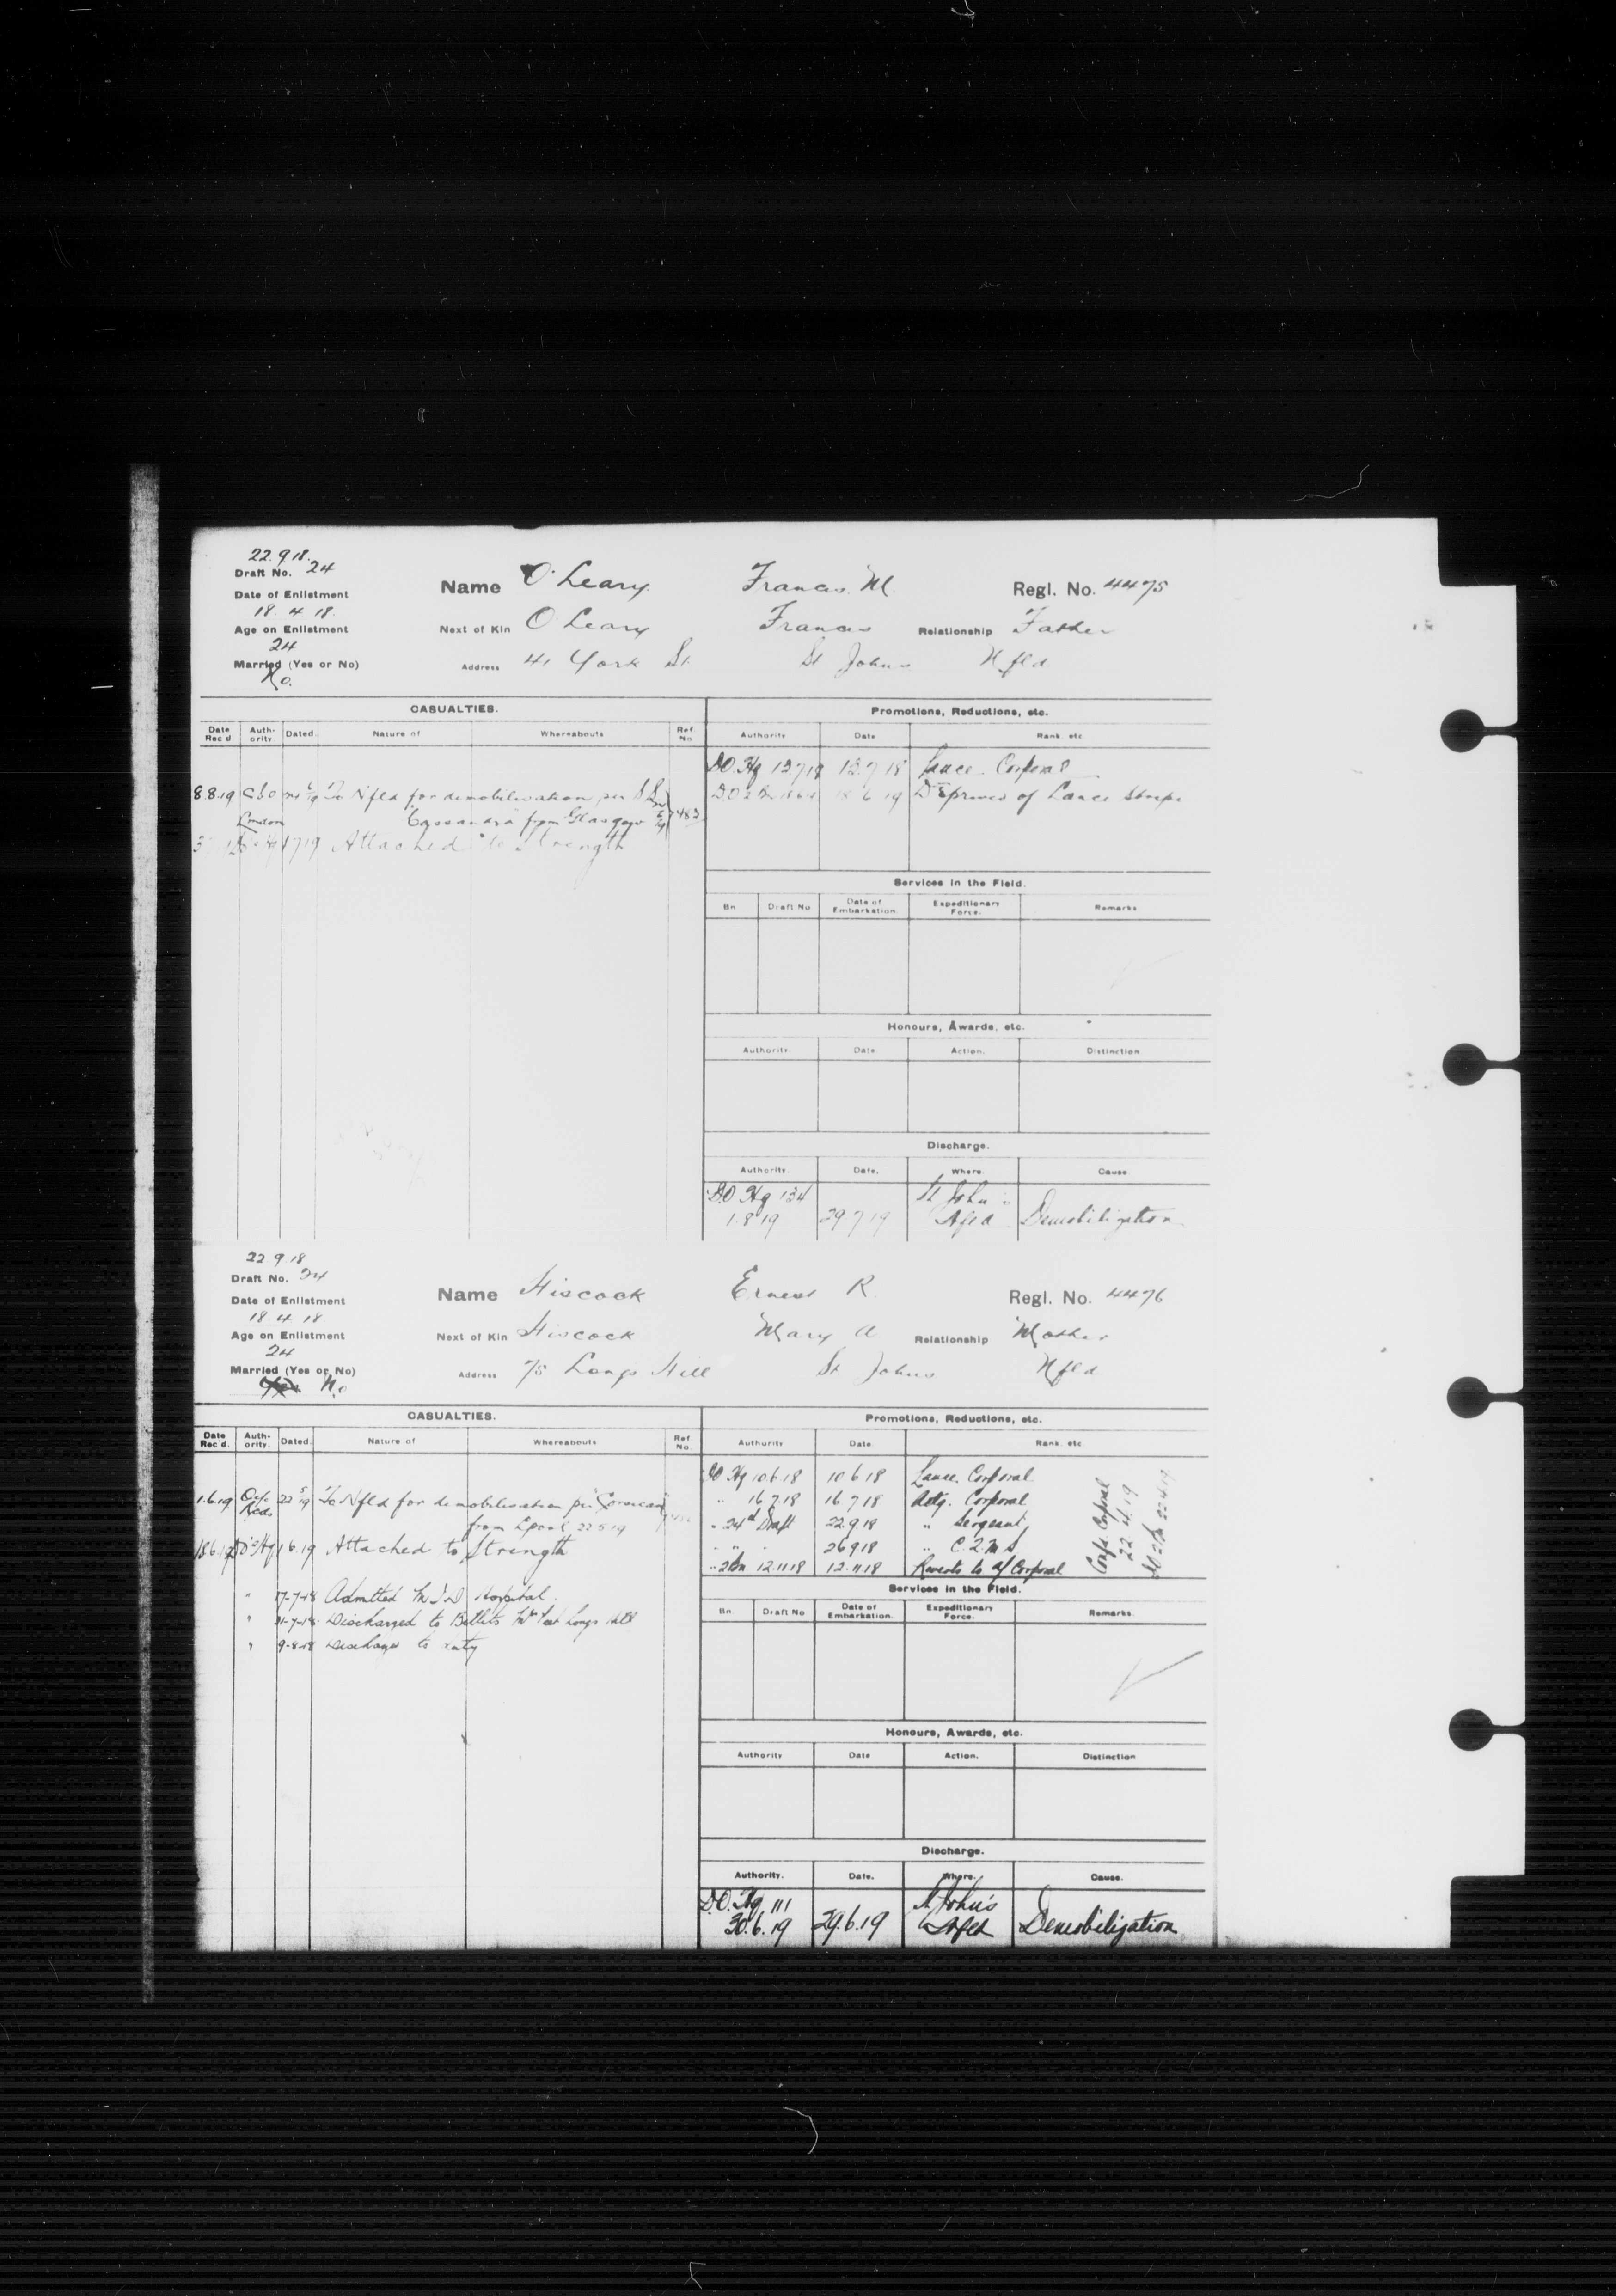 22.9.18.
Draft No. 24
Name O'Leary Francis M Regl. No. 4475
Date of Enlistment
18.4.18.
Next of Kin O'Leary Francis Relationship Father
Age on Enlistment
24
Address 41 York St. St Johns Nfld
Married (Yes or No)
No.
CASUALTIES.
Promotions, Reductions, etc.
Date Rec'd. Authority. Dated. Nature of Whereabouts Ref. No.
Authority Date Rank. etc
DO Hq 12 7 18 12.7 18 Lance Corporal
18 6 19 Deprived of Lance Stripe
8.8.19 London To Nfld for demobilisation per SS
"Cassandra" from Glasgow
1 7 19 Attached to Strength
Services in the Field.
Bn. Draft No Date of Embarkation. Expeditionary Force. Remarks
Honours, Awards, etc.
Authority. Date Action. Distinction
Discharge.
Authority. Date. Where. Cause.
DO Hq 134 St John's
1.8 19 29 7 19 Nfld Demobilization
22.9.18
Draft No. 24
Name Hiscock Ernest R. Regl. No. 4476
Date of Enlistment
18 4 18
Next of Kin Hiscock Mary A Relationship Mother
Age on Enlistment
24
Address 75 Longs Hill St. Johns Nfld
Married (Yes or No)
Yes No
CASUALTIES.
Promotions, Reductions, etc.
Date Rec'd. Authority. Dated. Nature of Whereabouts Ref. No.
Authority Date Rank. etc
DO Hq 10.6.18 10 6 18 Lance Corporal
" 16.7.18 16 7 18 Actg. Corporal
" 24th Draft 22.9.18 " Sergeant
" " 26 9 18 " C.Q.M.S
" 2Bn 12.11.18 12.11.18 Reverts to a/ Corporal
Conf. Corporal
22.4.19
DO 2Bn 22 4 19
1.6.19 Recds 22 5 19 To Nfld for demobilisation per "Corsican"
from Lpool 22 5 19
18 6 19 DO Hq 1 6.19 Attached to Strength
" 17-7-18 Admitted M.I.D Hospital.
" 31-7-18 Discharged to Billets Longs Hill
" 9-8-18 Discharged to duty
Services in the Field.
Bn. Draft No Date of Embarkation. Expeditionary Force. Remarks.
Honours, Awards, etc.
Authority Date Action. Distinction
Discharge.
Authority. Date. Where. Cause.
D.O. Hq 111 St John's
30.6.19 29.6.19 Nfld Demobilization